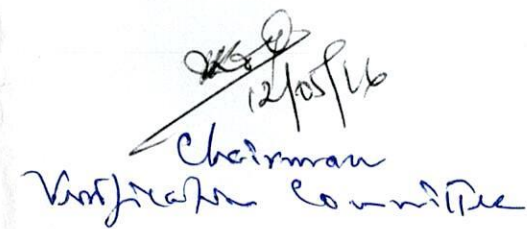 12/05/16
Chairman
Verification Committee